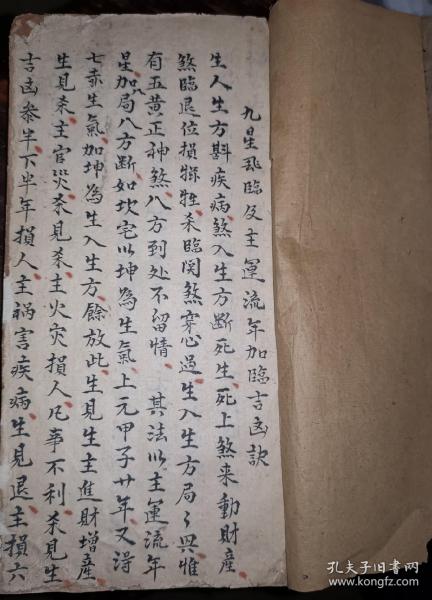 九星飛臨及主運流年加臨吉凶訣
生人生方斟疾病煞入生方斷死生死上煞来動財產
煞臨退位損牲殺臨関煞穿心過生入生方局々興惟
有五黄正神煞八方到处不留情 其法以主運流年
星加局八方斷如坎宅以坤為生氣上元甲子廿年又得
七赤生氣加坤為生入生方餘放此生見生主進財增產
生見杀主官災杀見杀主火灾損人凡事不利杀見生
吉凶叅半下半年損人主禍害疾病生見退主損六
孔夫子旧书网
www.kongfz.com